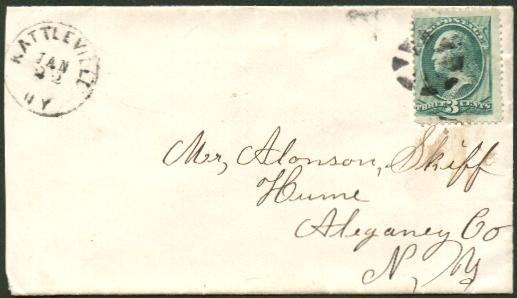 KATTLEVILLE
JAN
22
NY
THREE 3 CENTS
Mr, Alonson, Skiff
Hume
Aleganey Co
N, Y